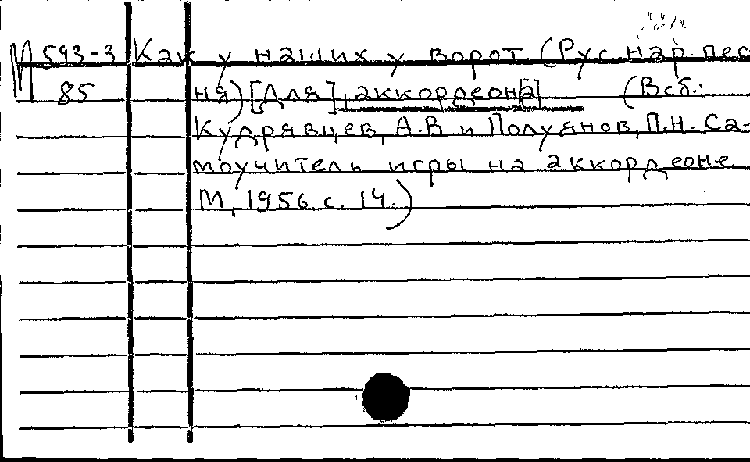 М 593-3 Как у наших у ворот (Рус. нар. пес-
85 ня) [Для] аккордеона] (В сб.:
Кудрявцев, А.В. и Полуянов, П.Н. Са-
моучитель игры на аккордеоне.
М., 1956. с. 14.)